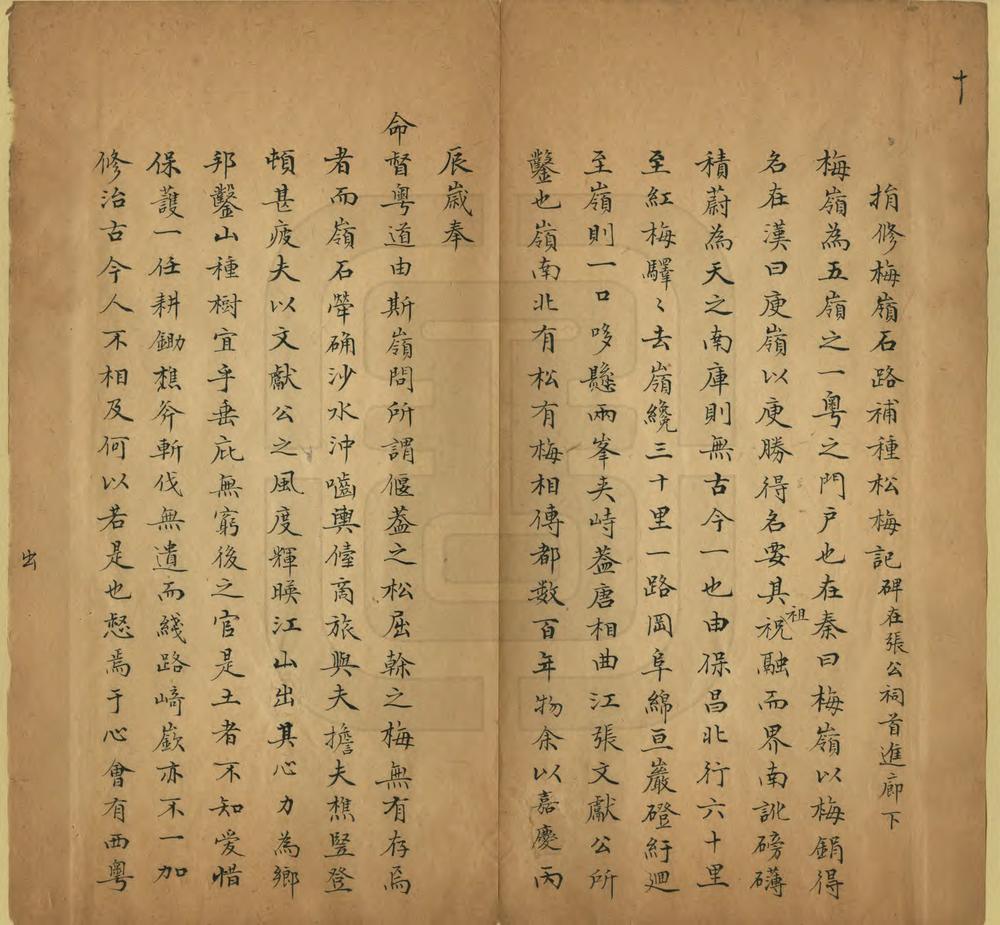 十
捐修梅嶺石路補種松梅記碑在張公祠首進廊下
梅嶺為五嶺之一粵之門戶也在秦曰梅嶺以梅鋗得
名在漢曰庾嶺以庾勝得名要其祖祝融而界南訛磅礴
積蔚為天之南庫則無古今一也由保昌北行六十里
至紅梅驛〻去嶺纔三十里一路岡阜綿亘巖磴紆廻
至嶺則一口哆懸兩峯夾峙葢唐相曲江張文獻公所
鑿也嶺南北有松有梅相傳都數百年物余以嘉慶丙
辰歲奉
命督粵道由斯嶺問所謂偃葢之松屈榦之梅無有存焉
者而嶺石犖确沙水沖嚙輿儓商旅與夫擔夫樵豎登
頓甚疲夫以文獻公之風度輝暎江山出其心力為鄉
邦鑿山種樹宜乎垂庇無窮後之官是土者不知愛惜
保護一任耕鋤樵斧斬伐無遺而綫路崎嶔亦不一加
修治古今人不相及何以若是也惄焉于心會有西粵
出